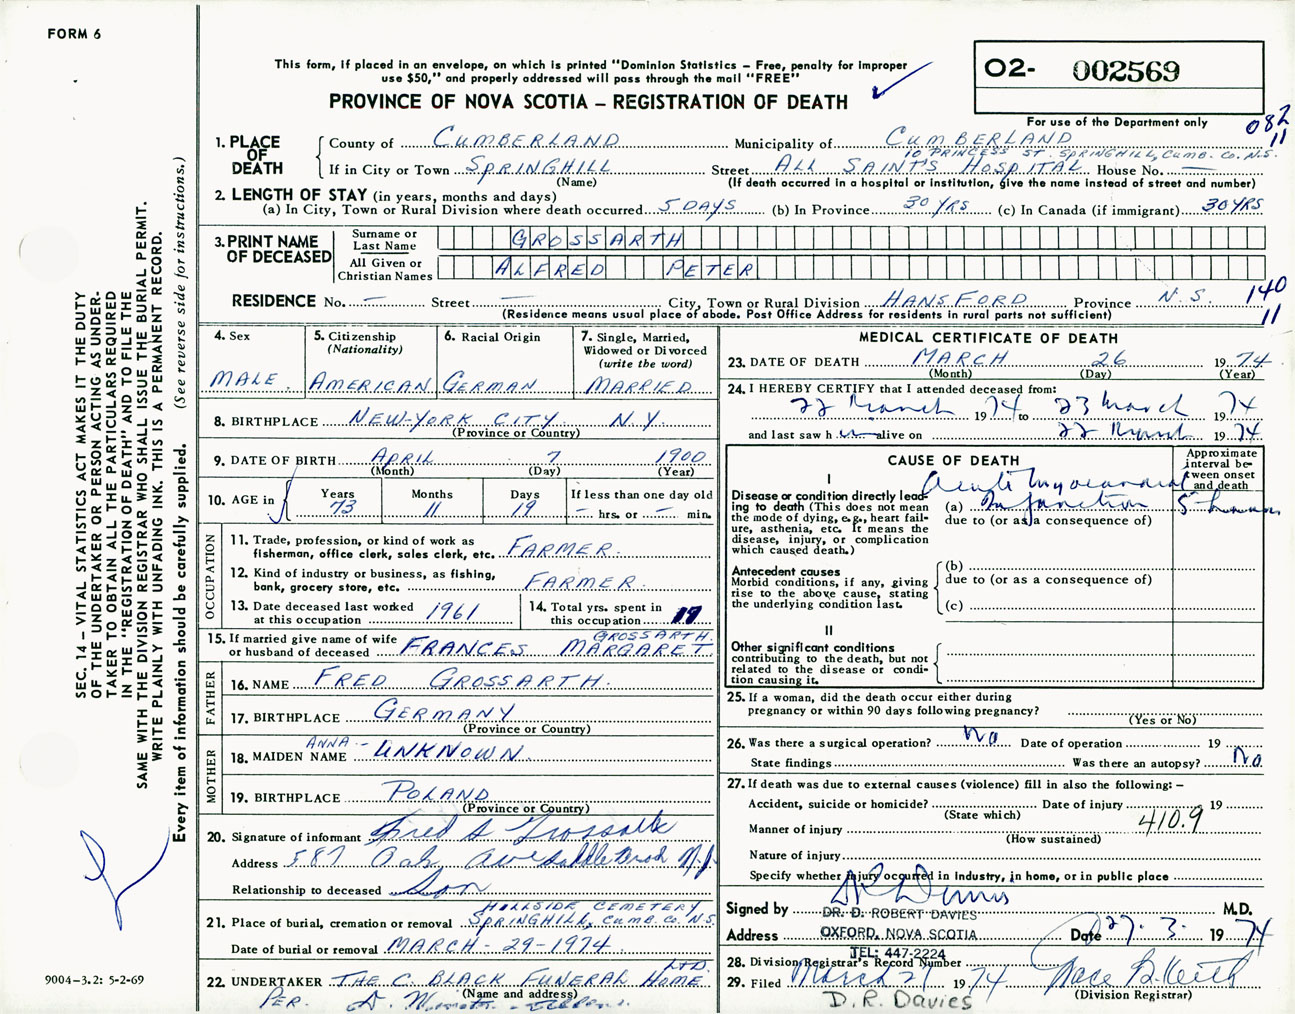 FORM 6
This form, if placed in an envelope, on which is printed "Dominion Statistics – Free, penalty for improper
use $50," and properly addressed will pass through the mail "FREE"
PROVINCE OF NOVA SCOTIA – REGISTRATION OF DEATH
02- 002569
For use of the Department only
082
11
1. PLACE OF DEATH County of CUMBERLAND Municipality of CUMBERLAND
10 PRINCESS ST. SPRINGHILL, CUMB. CO. N.S.
If in City or Town SPRINGHILL Street ALL SAINT'S HOSPITAL House No. —
(Name) (If death occurred in a hospital or institution, give the name instead of street and number)
2. LENGTH OF STAY (in years, months and days)
(a) In City, Town or Rural Division where death occurred 5 DAYS (b) In Province 30 YRS (c) In Canada (if immigrant) 30 YRS
3. PRINT NAME OF DECEASED
Surname or Last Name GROSSARTH
All Given or Christian Names ALFRED PETER
RESIDENCE No. — Street — City, Town or Rural Division HANSFORD Province N.S.
140
11
(Residence means usual place of abode. Post Office Address for residents in rural parts not sufficient)
4. Sex MALE
5. Citizenship (Nationality) AMERICAN
6. Racial Origin GERMAN
7. Single, Married, Widowed or Divorced (write the word) MARRIED
8. BIRTHPLACE NEW-YORK CITY N.Y.
(Province or Country)
9. DATE OF BIRTH APRIL 7 1900
(Month) (Day) (Year)
10. AGE in Years 73 Months 11 Days 19 If less than one day old – hrs. or – min.
OCCUPATION
11. Trade, profession, or kind of work as
fisherman, office clerk, sales clerk, etc. FARMER.
12. Kind of industry or business, as fishing,
bank, grocery store, etc. FARMER.
13. Date deceased last worked
at this occupation 1961
14. Total yrs. spent in
this occupation 17
15. If married give name of wife
or husband of deceased FRANCES MARGARET GROSSARTH.
FATHER
16. NAME FRED GROSSARTH.
17. BIRTHPLACE GERMANY
(Province or Country)
MOTHER
18. MAIDEN NAME ANNA – UNKNOWN
19. BIRTHPLACE POLAND
(Province or Country)
20. Signature of informant Fred
Address 587 Oak Ave N.J.
Relationship to deceased Son
21. Place of burial, cremation or removal HILLSIDE CEMETERY
SPRINGHILL, CUMB. CO. N.S.
Date of burial or removal MARCH - 29 - 1974
22. UNDERTAKER THE C. BLACK FUNERAL HOME LTD.
(Name and address)
PER. D.
MEDICAL CERTIFICATE OF DEATH
23. DATE OF DEATH MARCH 26 1974
(Month) (Day) (Year)
24. I HEREBY CERTIFY that I attended deceased from:
22 March 1974 to 23 March 1974
and last saw h im alive on 22 March 1974
CAUSE OF DEATH
Approximate
interval be-
tween onset
and death
I
Disease or condition directly lead-
ing to death (This does not mean
the mode of dying, e.g., heart fail-
ure, asthenia, etc. It means the
disease, injury, or complication
which caused death.)
(a) Acute Myocardial
Infarction 5 hours
due to (or as a consequence of)
Antecedent causes
Morbid conditions, if any, giving
rise to the above cause, stating
the underlying condition last.
(b)
due to (or as a consequence of)
(c)
II
Other significant conditions
contributing to the death, but not
related to the disease or condi-
tion causing it.
25. If a woman, did the death occur either during
pregnancy or within 90 days following pregnancy?
(Yes or No)
26. Was there a surgical operation? No Date of operation 19
State findings Was there an autopsy? No
27. If death was due to external causes (violence) fill in also the following: –
Accident, suicide or homicide? Date of injury 19
(State which)
410.9
Manner of injury
(How sustained)
Nature of injury
Specify whether injury occurred in industry, in home, or in public place
Signed by DR. D. ROBERT DAVIES M.D.
Address OXFORD, NOVA SCOTIA Date 27. 3. 1974
TEL: 447-2224
28. Division Registrar's Record Number
29. Filed March 1974
(Division Registrar)
D.R. Davies
SEC. 14 – VITAL STATISTICS ACT MAKES IT THE DUTY
OF THE UNDERTAKER OR PERSON ACTING AS UNDER-
TAKER TO OBTAIN ALL THE PARTICULARS REQUIRED
IN THE "REGISTRATION OF DEATH" AND TO FILE THE
SAME WITH THE DIVISION REGISTRAR WHO SHALL ISSUE THE BURIAL PERMIT.
WRITE PLAINLY WITH UNFADING INK. THIS IS A PERMANENT RECORD.
Every item of information should be carefully supplied. (See reverse side for instructions.)
9004–3.2: 5-2-69